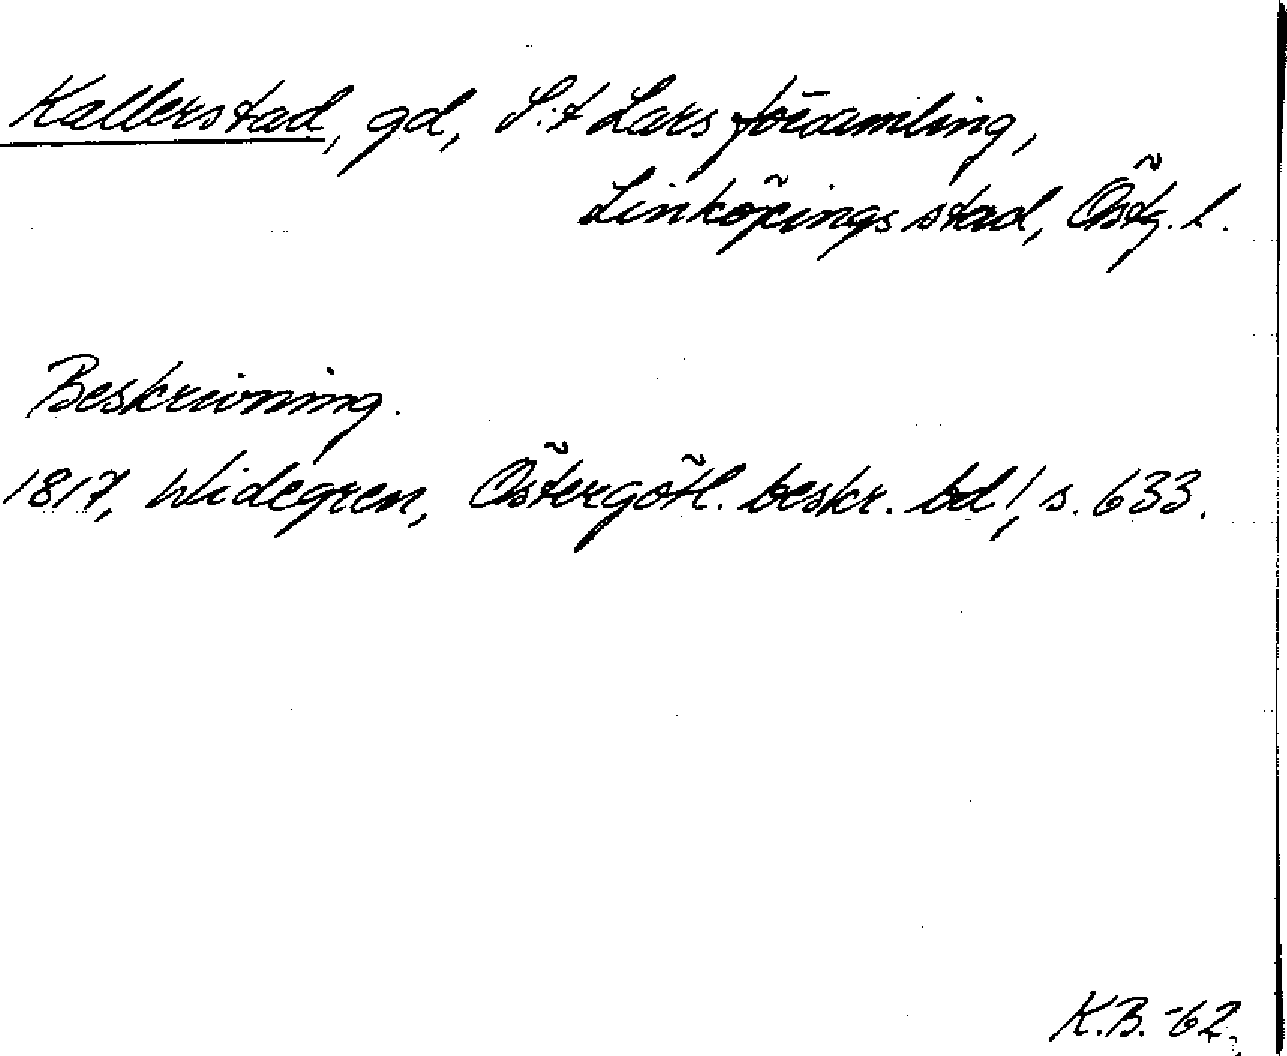 Kallerstad, gd, S:t Lars församling,
Linköpings stad, Östg. l.
Beskrivning.
1817, Widegren, Östergötl. beskr. bd 1, s. 633.
K.B. -62.